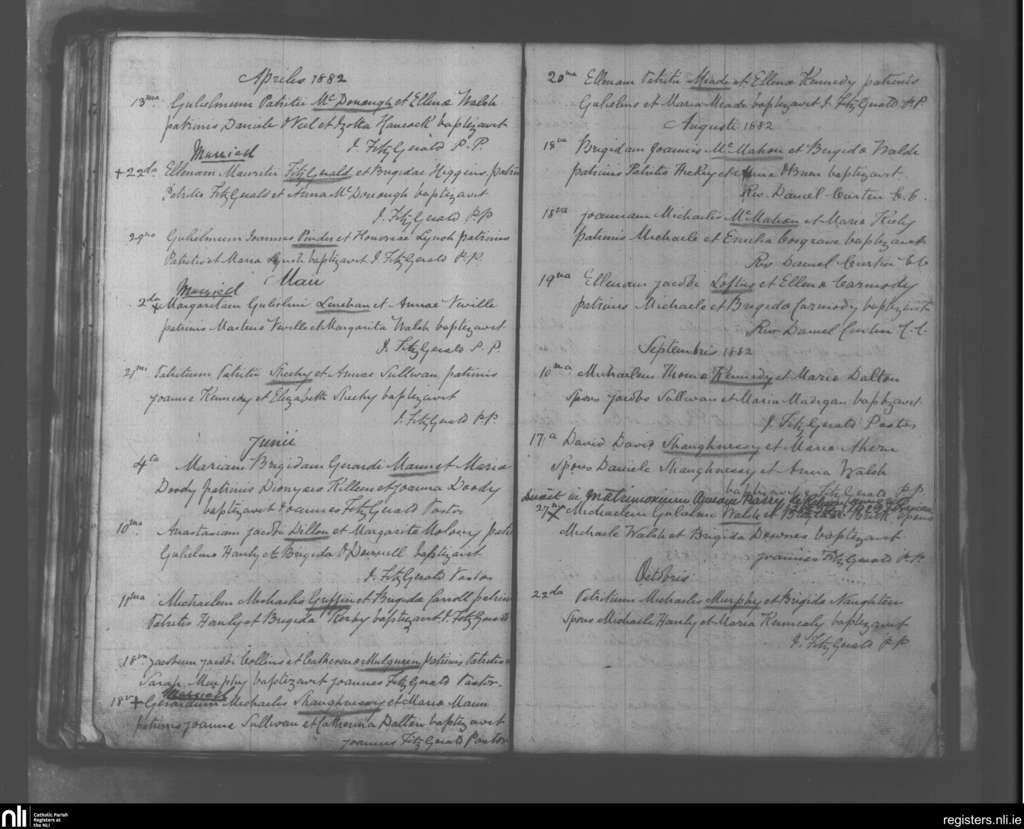 Aprilis 1882
13ma Gulielmum Patritii McDonough et Ellenæ Walsh
patrinis Daniele O'Neil et Hancock baptizavit
J. FitzGerald P.P.
Married
+ 22da Ellenam Mauritii FitzGerald et Brigidae Higgins, patrin
Patritio FitzGerald et Anna McDonough baptizavit
J. FitzGerald P.P
Gulielmum Joannis Pindar et Honoriae Lynch patrinis
Patritio et Maria Lynch baptizavit J. FitzGerald P.P.
Maii
Married
2da + Margaritam Gulielmi Lenehan et Annae Neville
patrinis Martino Neville et Margarita Walsh baptizavit
J. FitzGerald P.P.
21ma Patritium Patritii Sheehy et Annae Sullivan patrinis
Joanne Kennedy et Elizabeth Sheehy baptizavit
J. FitzGerald P.P.
Junii
4ta Mariam Brigidam Gerardi Mann et Maria
Doody patrinis Dionysio Killeen et Joanna Doody
baptizavit Joannes FitzGerald Pastor
10ma Anastasiam Jacobi Dillon et Margarita Molony patr
Gulielmo Hanly et Brigida O'Donnell baptizavit
J. FitzGerald Pastor
11ma Michaelem Michaelis Griffin et Brigida Carroll patrin
Patritio Hanly et Brigida Kirby baptizavit J. FitzGerald
18va Jacobum Jacobi Collins et Catherina Mulqueen patrinis Patritio
Sarah Murphy baptizavit Joannes FitzGerald Pastor.
Married
18va + Gerardum Michaelis Shaughnessy et Maria Mann
patrinis Joanne Sullivan et Catherina Dalton baptizavit
Joannes FitzGerald Pastor
20ma Ellenam Patritii Meade et Ellenæ Kennedy patrinis
Gulielmo et Maria Meade baptizavit J. FitzGerald P.P
Augusti 1882
18va Brigidam Joannis McMahon et Brigida Walsh
patrinis Patritio Hickey et Anna baptizavit.
Rev. Daniel Curtin C.C.
18va Joannam Michaelis McMahon et Maria
patrinis Michaele et Cosgrave baptizavit
Rev Daniel Curtin C.C
19na Ellenam Jacobi Loftus et Ellena Carmody
patrinis Michaele et Brigida Carmody baptizavit
Rev. Daniel Curtin C.C.
Septembris 1882
10ma Michaelem Thoma Kennedy et Maria Dalton
Spons Jacobo Sullivan et Maria Madigan baptizavit
J. FitzGerald Pastor
17a David David Shaughnessy et Maria Ahern
Spons Daniele Shaughnessy et Anna Walsh
baptizavit J. FitzGerald P.P
Duxit in matrimonium
27 X Michaelem Gulielmi Walsh et Spons
Michaele Walsh et Brigida Downes baptizavit
Joannes FitzGerald P.P.
Octobris
22da Patritium Michaelis Murphy et Brigida Naughten
Spons Michaele Hanly et Maria Kennealy baptizavit
J. FitzGerald P.P
nli Catholic Parish
Registers at
the NLI
registers.nli.ie